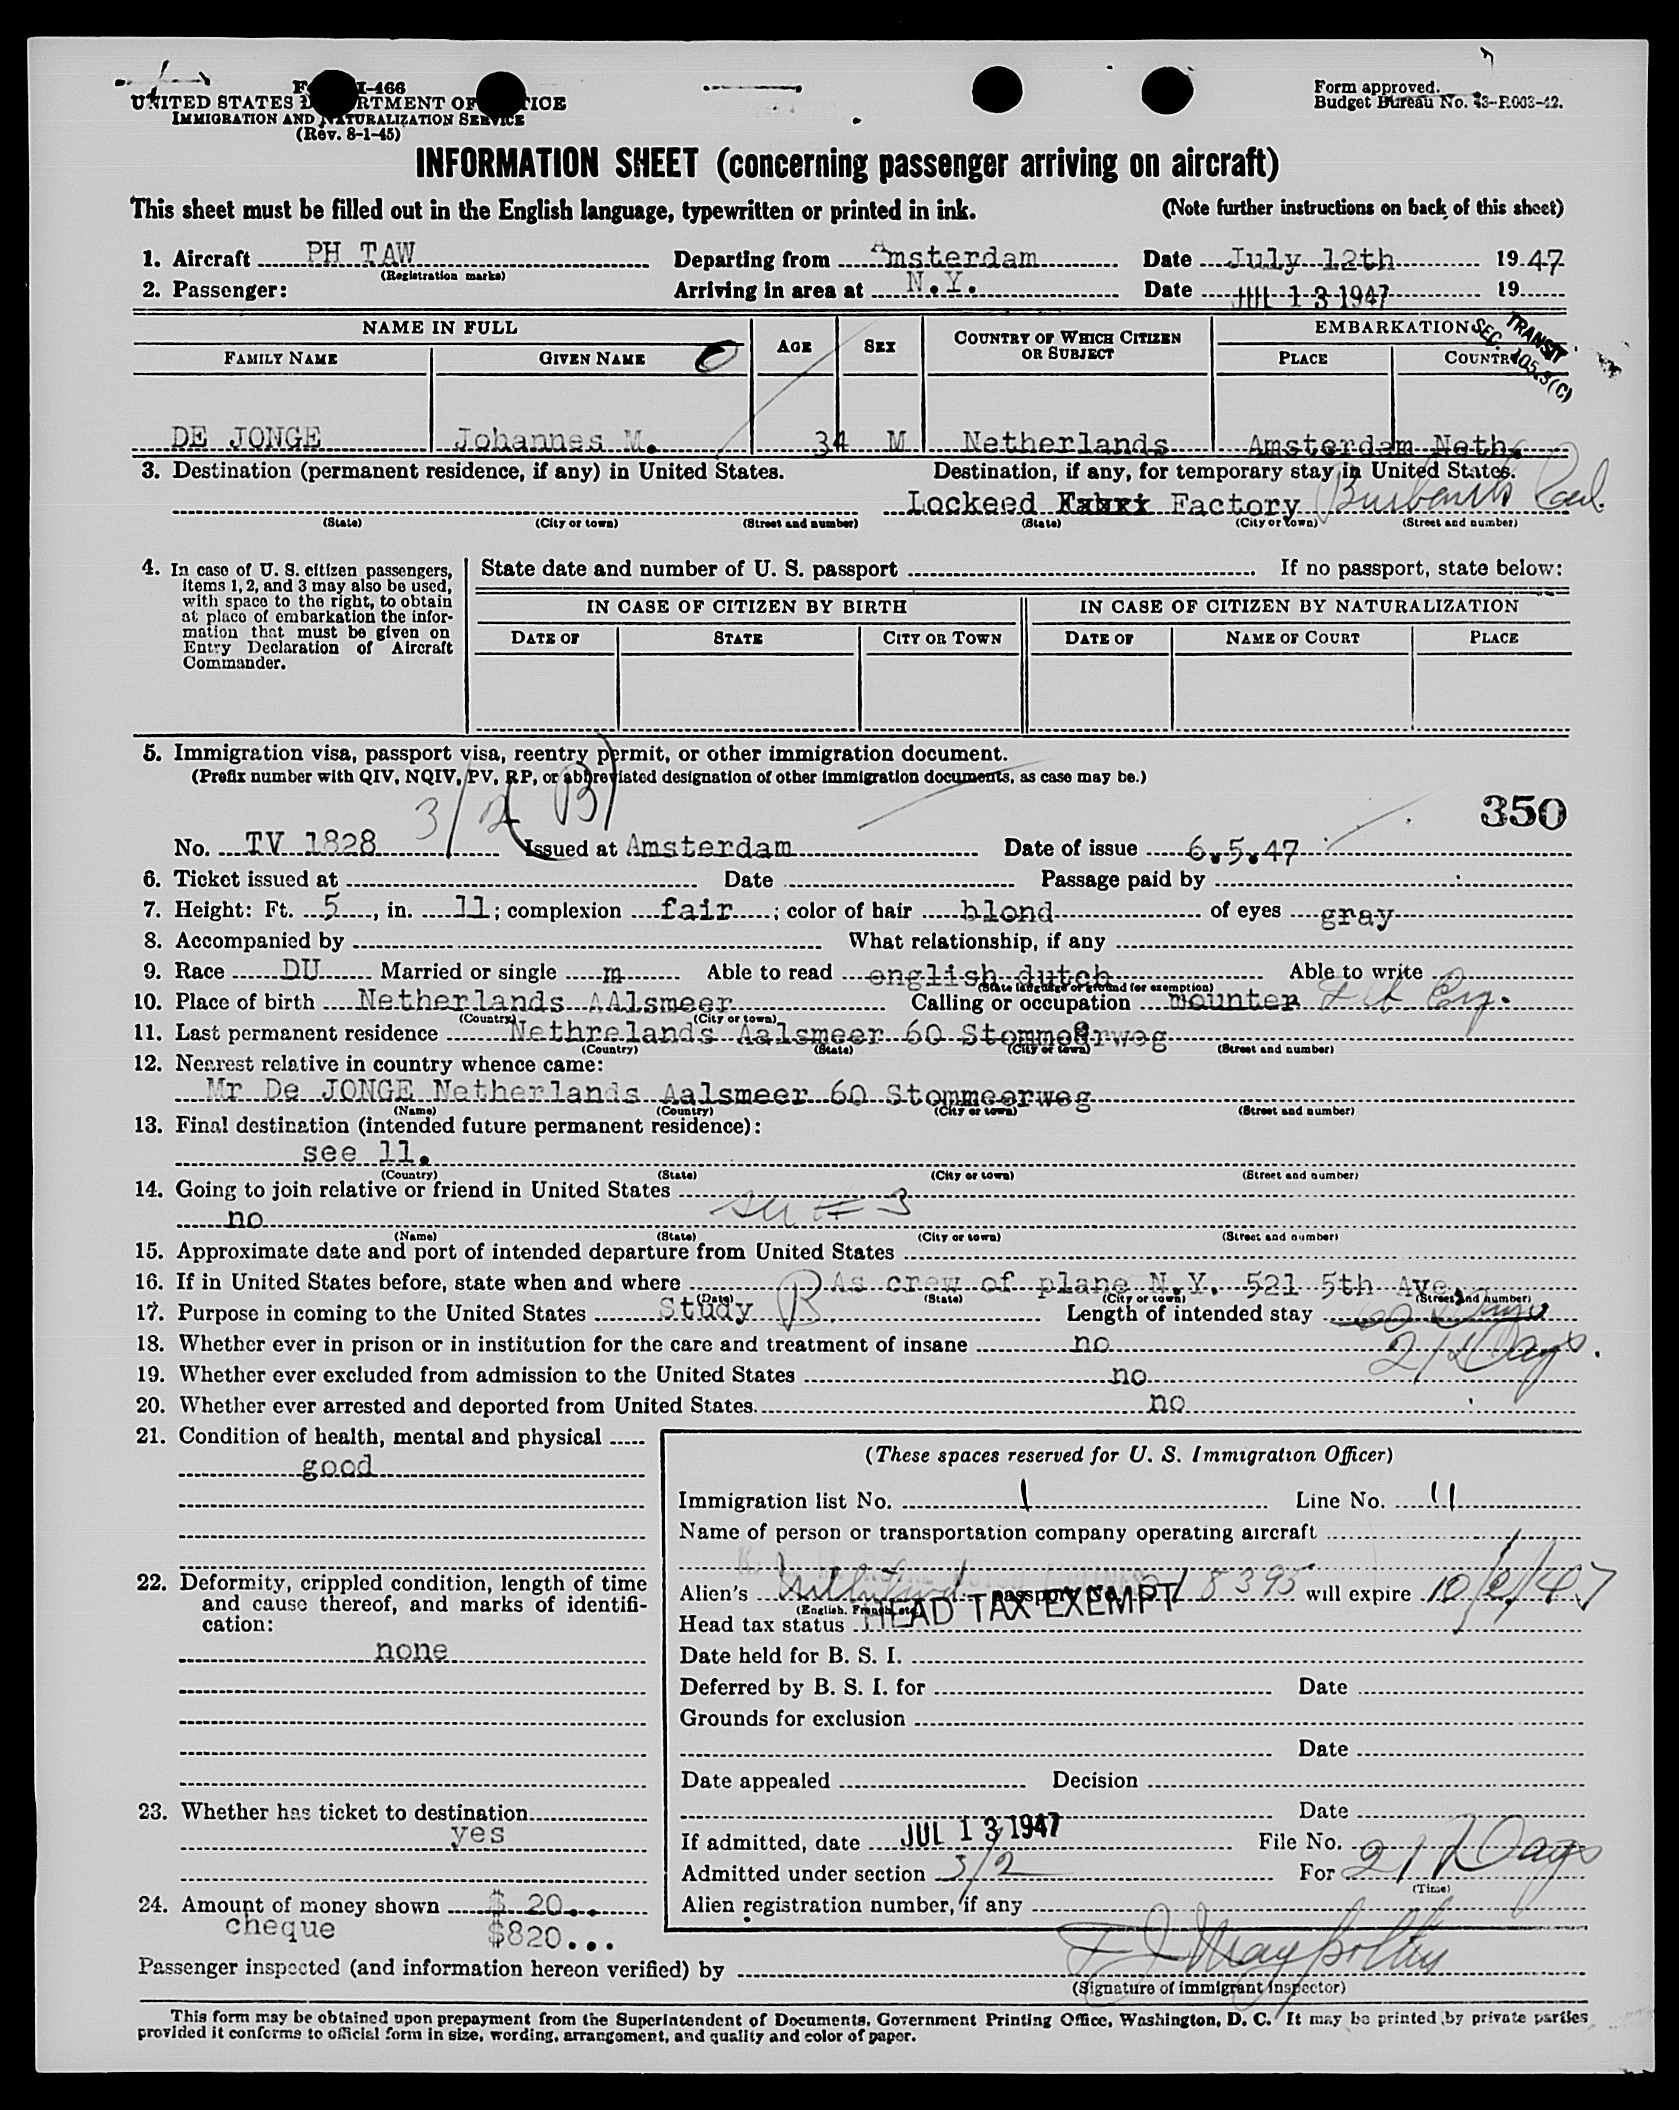 Form I-466
UNITED STATES DEPARTMENT OF JUSTICE
IMMIGRATION AND NATURALIZATION SERVICE
(Rev. 8-1-45)
Form approved.
Budget Bureau No. 43-R003-42.
INFORMATION SHEET (concerning passenger arriving on aircraft)
This sheet must be filled out in the English language, typewritten or printed in ink. (Note further instructions on back of this sheet)
1. Aircraft PH TAW Departing from Amsterdam Date July 12th 1947
(Registration marks)
2. Passenger: Arriving in area at N.Y. Date JUL 13 1947 19
NAME IN FULL AGE SEX COUNTRY OF WHICH CITIZEN OR SUBJECT EMBARKATION
FAMILY NAME GIVEN NAME PLACE COUNTRY
TRANSIT
SEC. 105.3(C)
DE JONGE Johannes M. 34 M Netherlands Amsterdam Neth.
3. Destination (permanent residence, if any) in United States. Destination, if any, for temporary stay in United States.
Lockeed Fabri Factory Burbank Cal.
(State) (City or town) (Street and number) (State) (City or town) (Street and number)
4. In case of U. S. citizen passengers, items 1, 2, and 3 may also be used, with space to the right, to obtain at place of embarkation the information that must be given on Entry Declaration of Aircraft Commander.
State date and number of U. S. passport If no passport, state below:
IN CASE OF CITIZEN BY BIRTH IN CASE OF CITIZEN BY NATURALIZATION
DATE OF STATE CITY OR TOWN DATE OF NAME OF COURT PLACE
5. Immigration visa, passport visa, reentry permit, or other immigration document.
(Prefix number with QIV, NQIV, PV, RP, or abbreviated designation of other immigration documents, as case may be.)
3/2 (B)
350
No. TV 1828 Issued at Amsterdam Date of issue 6.5.47
6. Ticket issued at Date Passage paid by
7. Height: Ft. 5, in. 11; complexion fair; color of hair blond of eyes gray
8. Accompanied by What relationship, if any
9. Race DU Married or single m Able to read english dutch Able to write
(State language or ground for exemption)
10. Place of birth Netherlands AAlsmeer Calling or occupation mounter Flt Eng.
(Country) (City or town)
11. Last permanent residence Nethrelands Aalsmeer 60 Stommeerweg
(Country) (State) (City or town) (Street and number)
12. Nearest relative in country whence came:
Mr De JONGE Netherlands Aalsmeer 60 Stommeerweg
(Name) (Country) (City or town) (Street and number)
13. Final destination (intended future permanent residence):
see 11.
(Country) (State) (City or town) (Street and number)
14. Going to join relative or friend in United States
no see # 3
(Name) (State) (City or town) (Street and number)
15. Approximate date and port of intended departure from United States
16. If in United States before, state when and where As crew of plane N.Y. 521 5th Ave.
(Date) (State) (City or town) (Street and number)
17. Purpose in coming to the United States Study B Length of intended stay 60 Days
21 Days.
18. Whether ever in prison or in institution for the care and treatment of insane no
19. Whether ever excluded from admission to the United States no
20. Whether ever arrested and deported from United States. no
21. Condition of health, mental and physical
good
(These spaces reserved for U. S. Immigration Officer)
Immigration list No. 1 Line No. 11
Name of person or transportation company operating aircraft
22. Deformity, crippled condition, length of time and cause thereof, and marks of identification:
none
Alien's passport No. 8395 will expire 10/2/47
(English, French, etc.)
Head tax status HEAD TAX EXEMPT
Date held for B. S. I.
Deferred by B. S. I. for Date
Grounds for exclusion
Date
Date appealed Decision
23. Whether has ticket to destination
yes
Date
If admitted, date JUL 13 1947 File No.
Admitted under section 3/2 For 21 Days
(Time)
24. Amount of money shown $ 20..
cheque $820...
Alien registration number, if any
Passenger inspected (and information hereon verified) by
(Signature of immigrant inspector)
This form may be obtained upon prepayment from the Superintendent of Documents, Government Printing Office, Washington, D. C. It may be printed by private parties
provided it conforms to official form in size, wording, arrangement, and quality and color of paper.